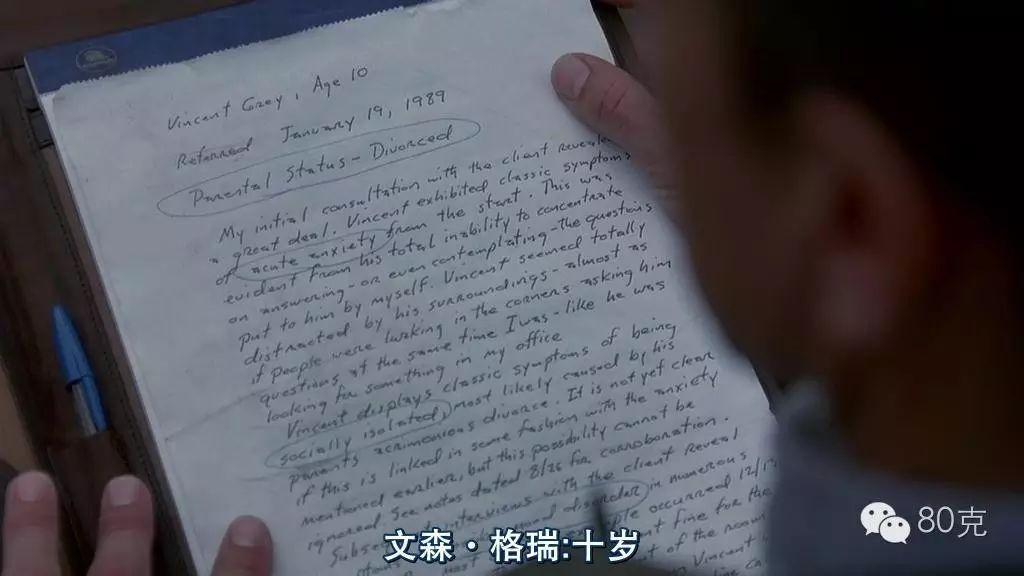 Vincent Grey, Age 10
Referred January 19, 1989
Parental Status - Divorced
My initial consultation with the client reveale
a great deal. Vincent exhibited classic symptoms
of acute anxiety from the start. This was
evident from his total inability to concentrate
on answering - or even contemplating - the questions
put to him by myself. Vincent seemed totally
distracted by his surroundings - almost as
if people were lurking in the corners asking him
questions at the same time I was - like he was
looking for something in my office
Vincent displays classic symptoms of being
socially isolated, most likely caused by his
parents acrimonious divorce. It is not yet clear
if this is linked in some fashion with the anxiety
mentioned earlier, but this possibility cannot be
ignored. See notes dated 8/26 for corroboration.
interviews with the client reveal
disorder in numerous
occurred 12/1
fine for the
of the room
Vincent
文森·格瑞:十岁
80克